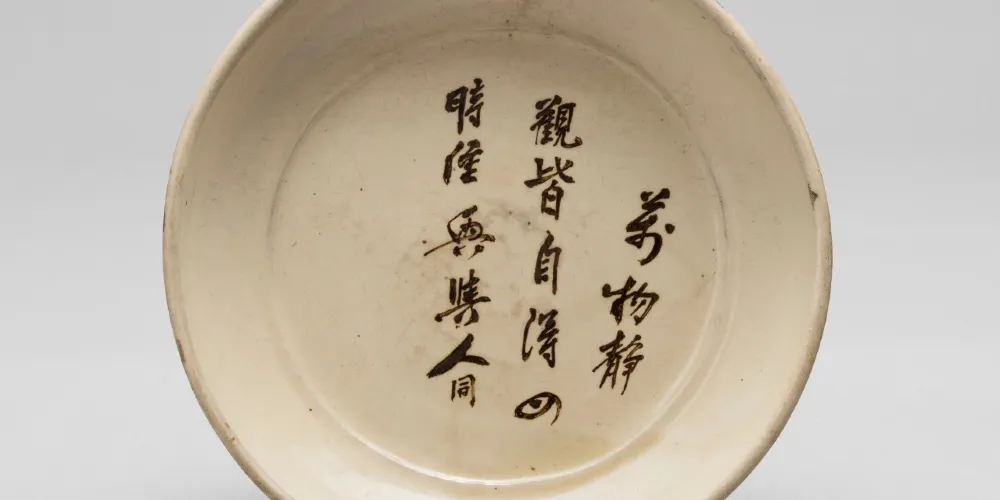 萬物静
觀皆自得四
時佳興與人同